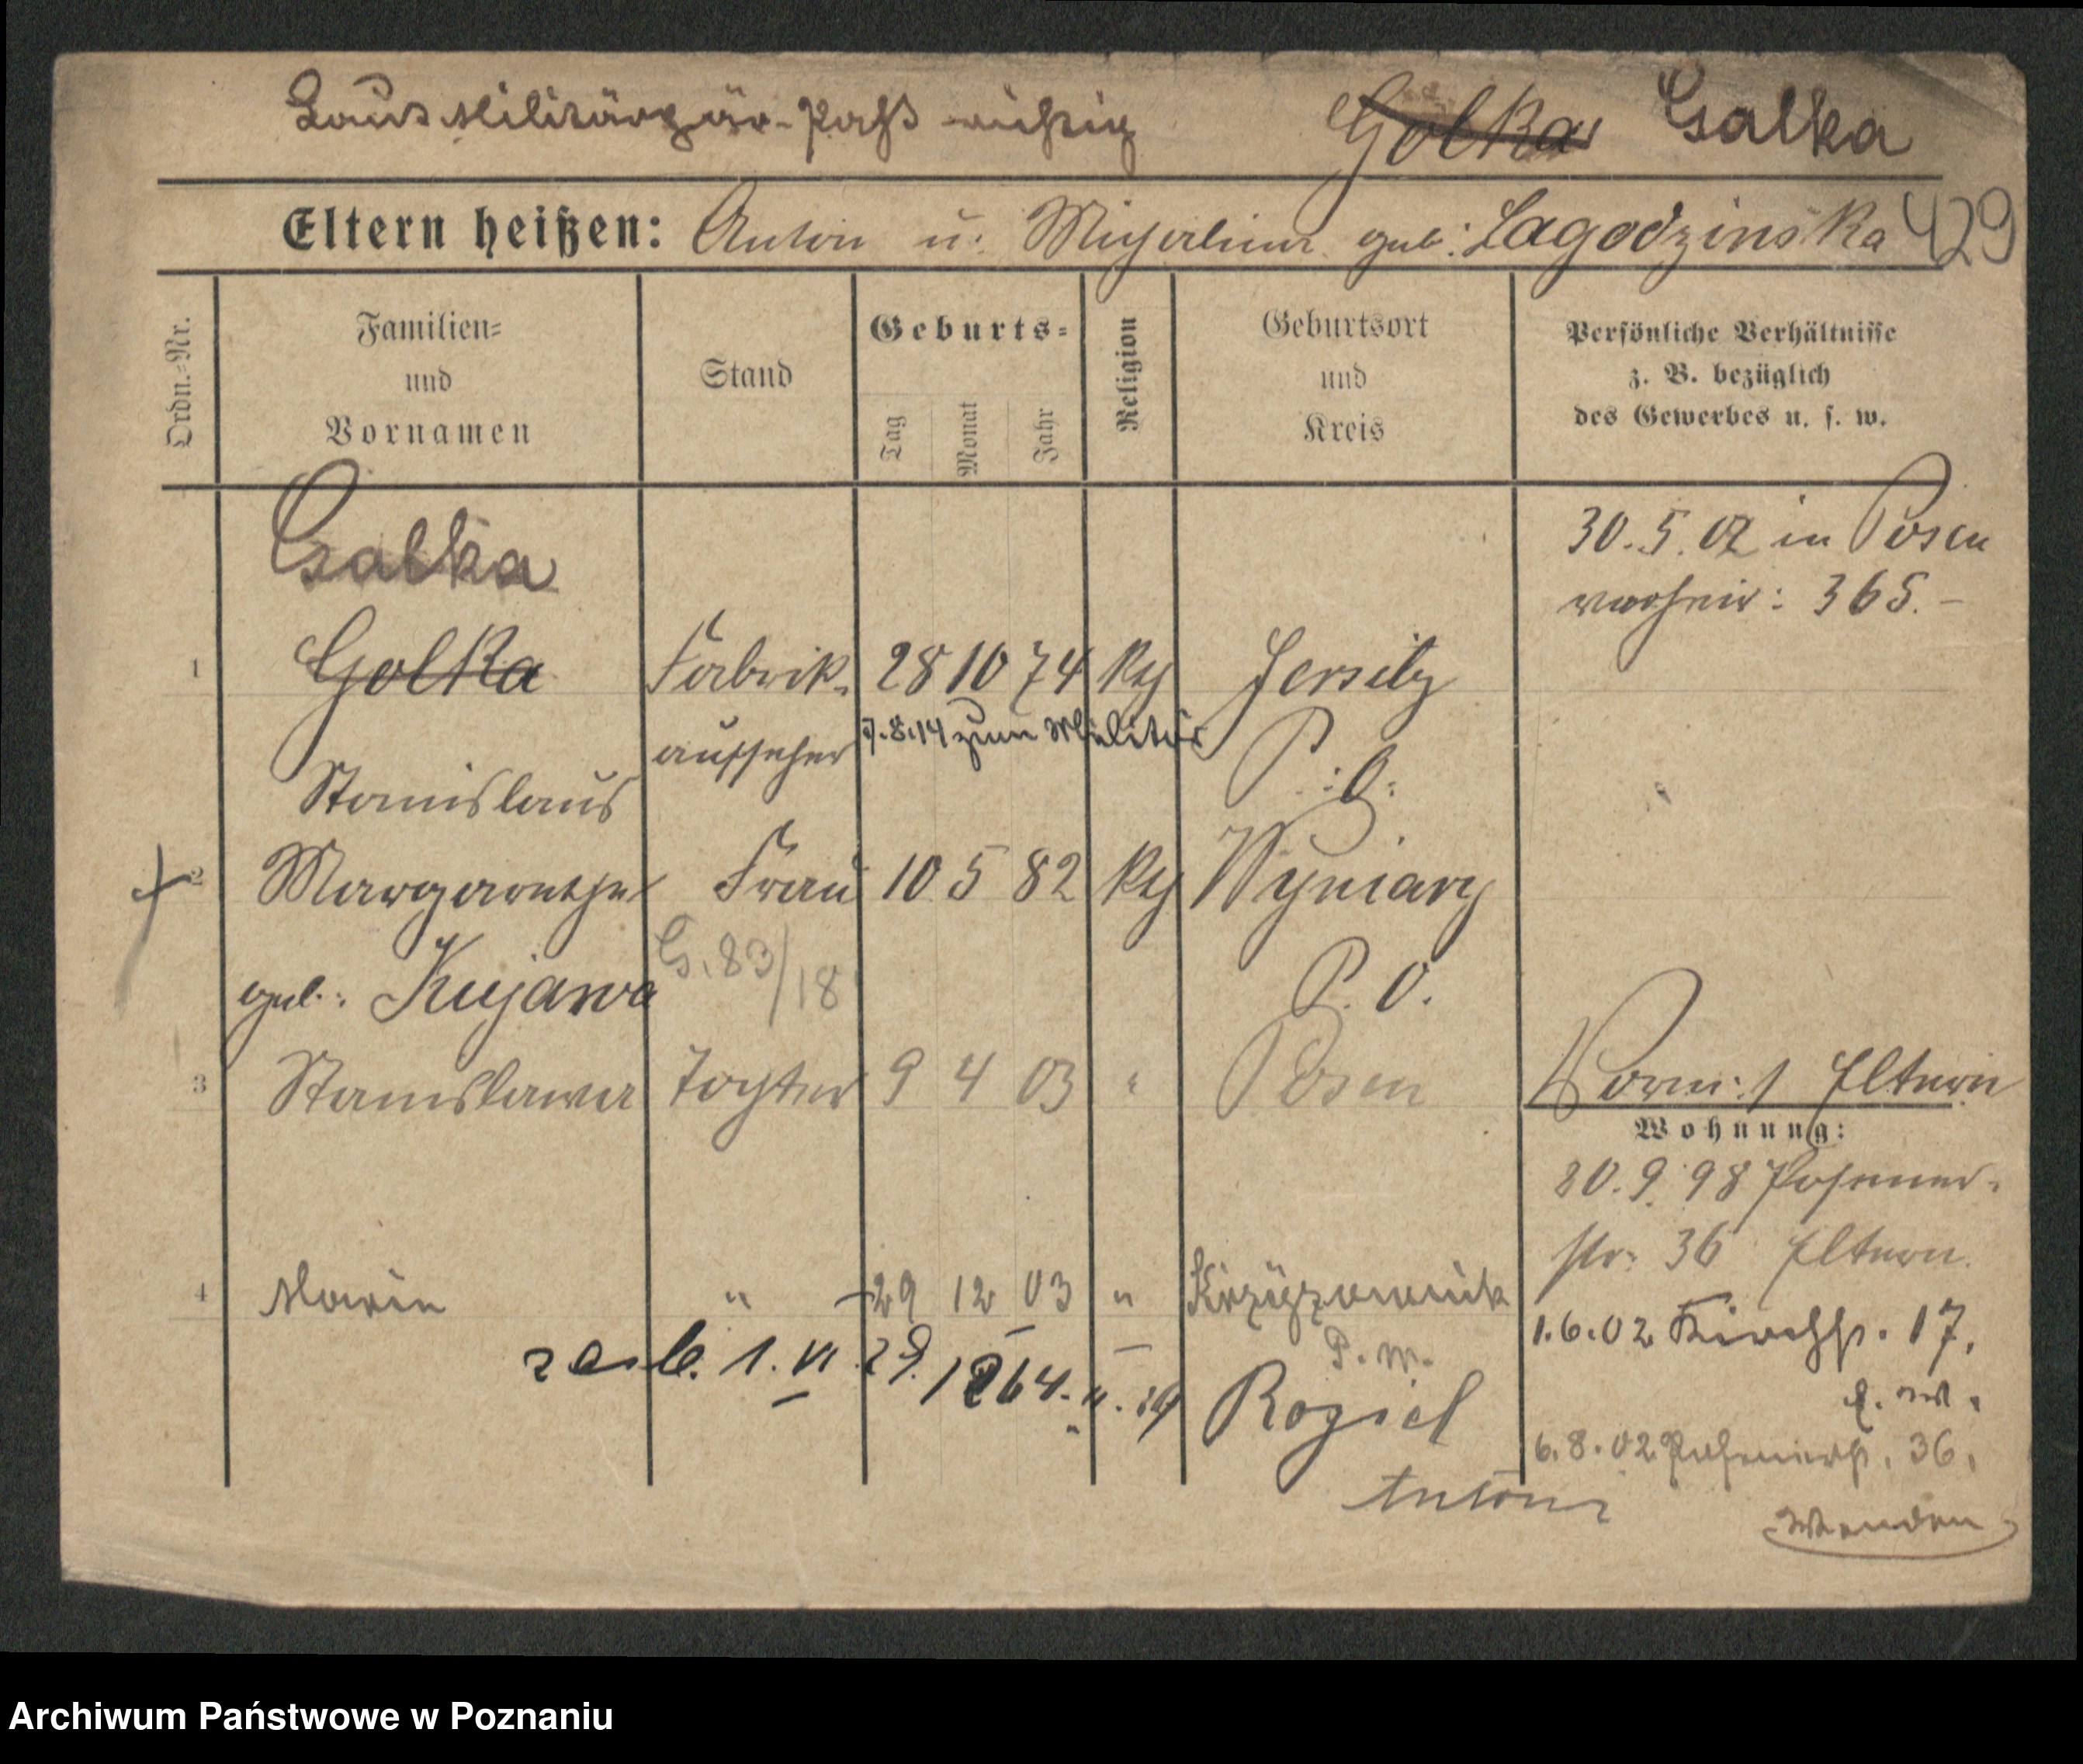 Laut Militär-Paß richtig Golka Galka
Eltern heißen: Anton u. Michalina geb: Lagodzinska 429
Ordn.-Nr.
Familien-
und
Vornamen
Stand
Geburts-
Tag
Monat
Jahr
Religion
Geburtsort
und
Kreis
Persönliche Verhältnisse
z. B. bezüglich
des Gewerbes u. s. w.
Galka
30.5.02 in Posen
365.-
1 Golka Fabrik- 28 10 74 kth Jersitz
aufseher 7.8.14 zum Militär P. O.
Stanislaus
2 Margarethe Frau 10 5 82 kth Wyniary
geb.: Kujawa G. 83/18 P. O.
3 Stanislawa Tochter 9 4 03 " Posen
Eltern
Wohnung:
20.9.98 Posener-
str. 36 Eltern.
4 Maria " 29 12 03 " Krzyzownik
P. W.
1.6.02 Kirchstr. 17.
1. VI 29. 1264. Roziel
Antoni
6.8.02 Posenerstr. 36.
Wenden
Archiwum Państwowe w Poznaniu